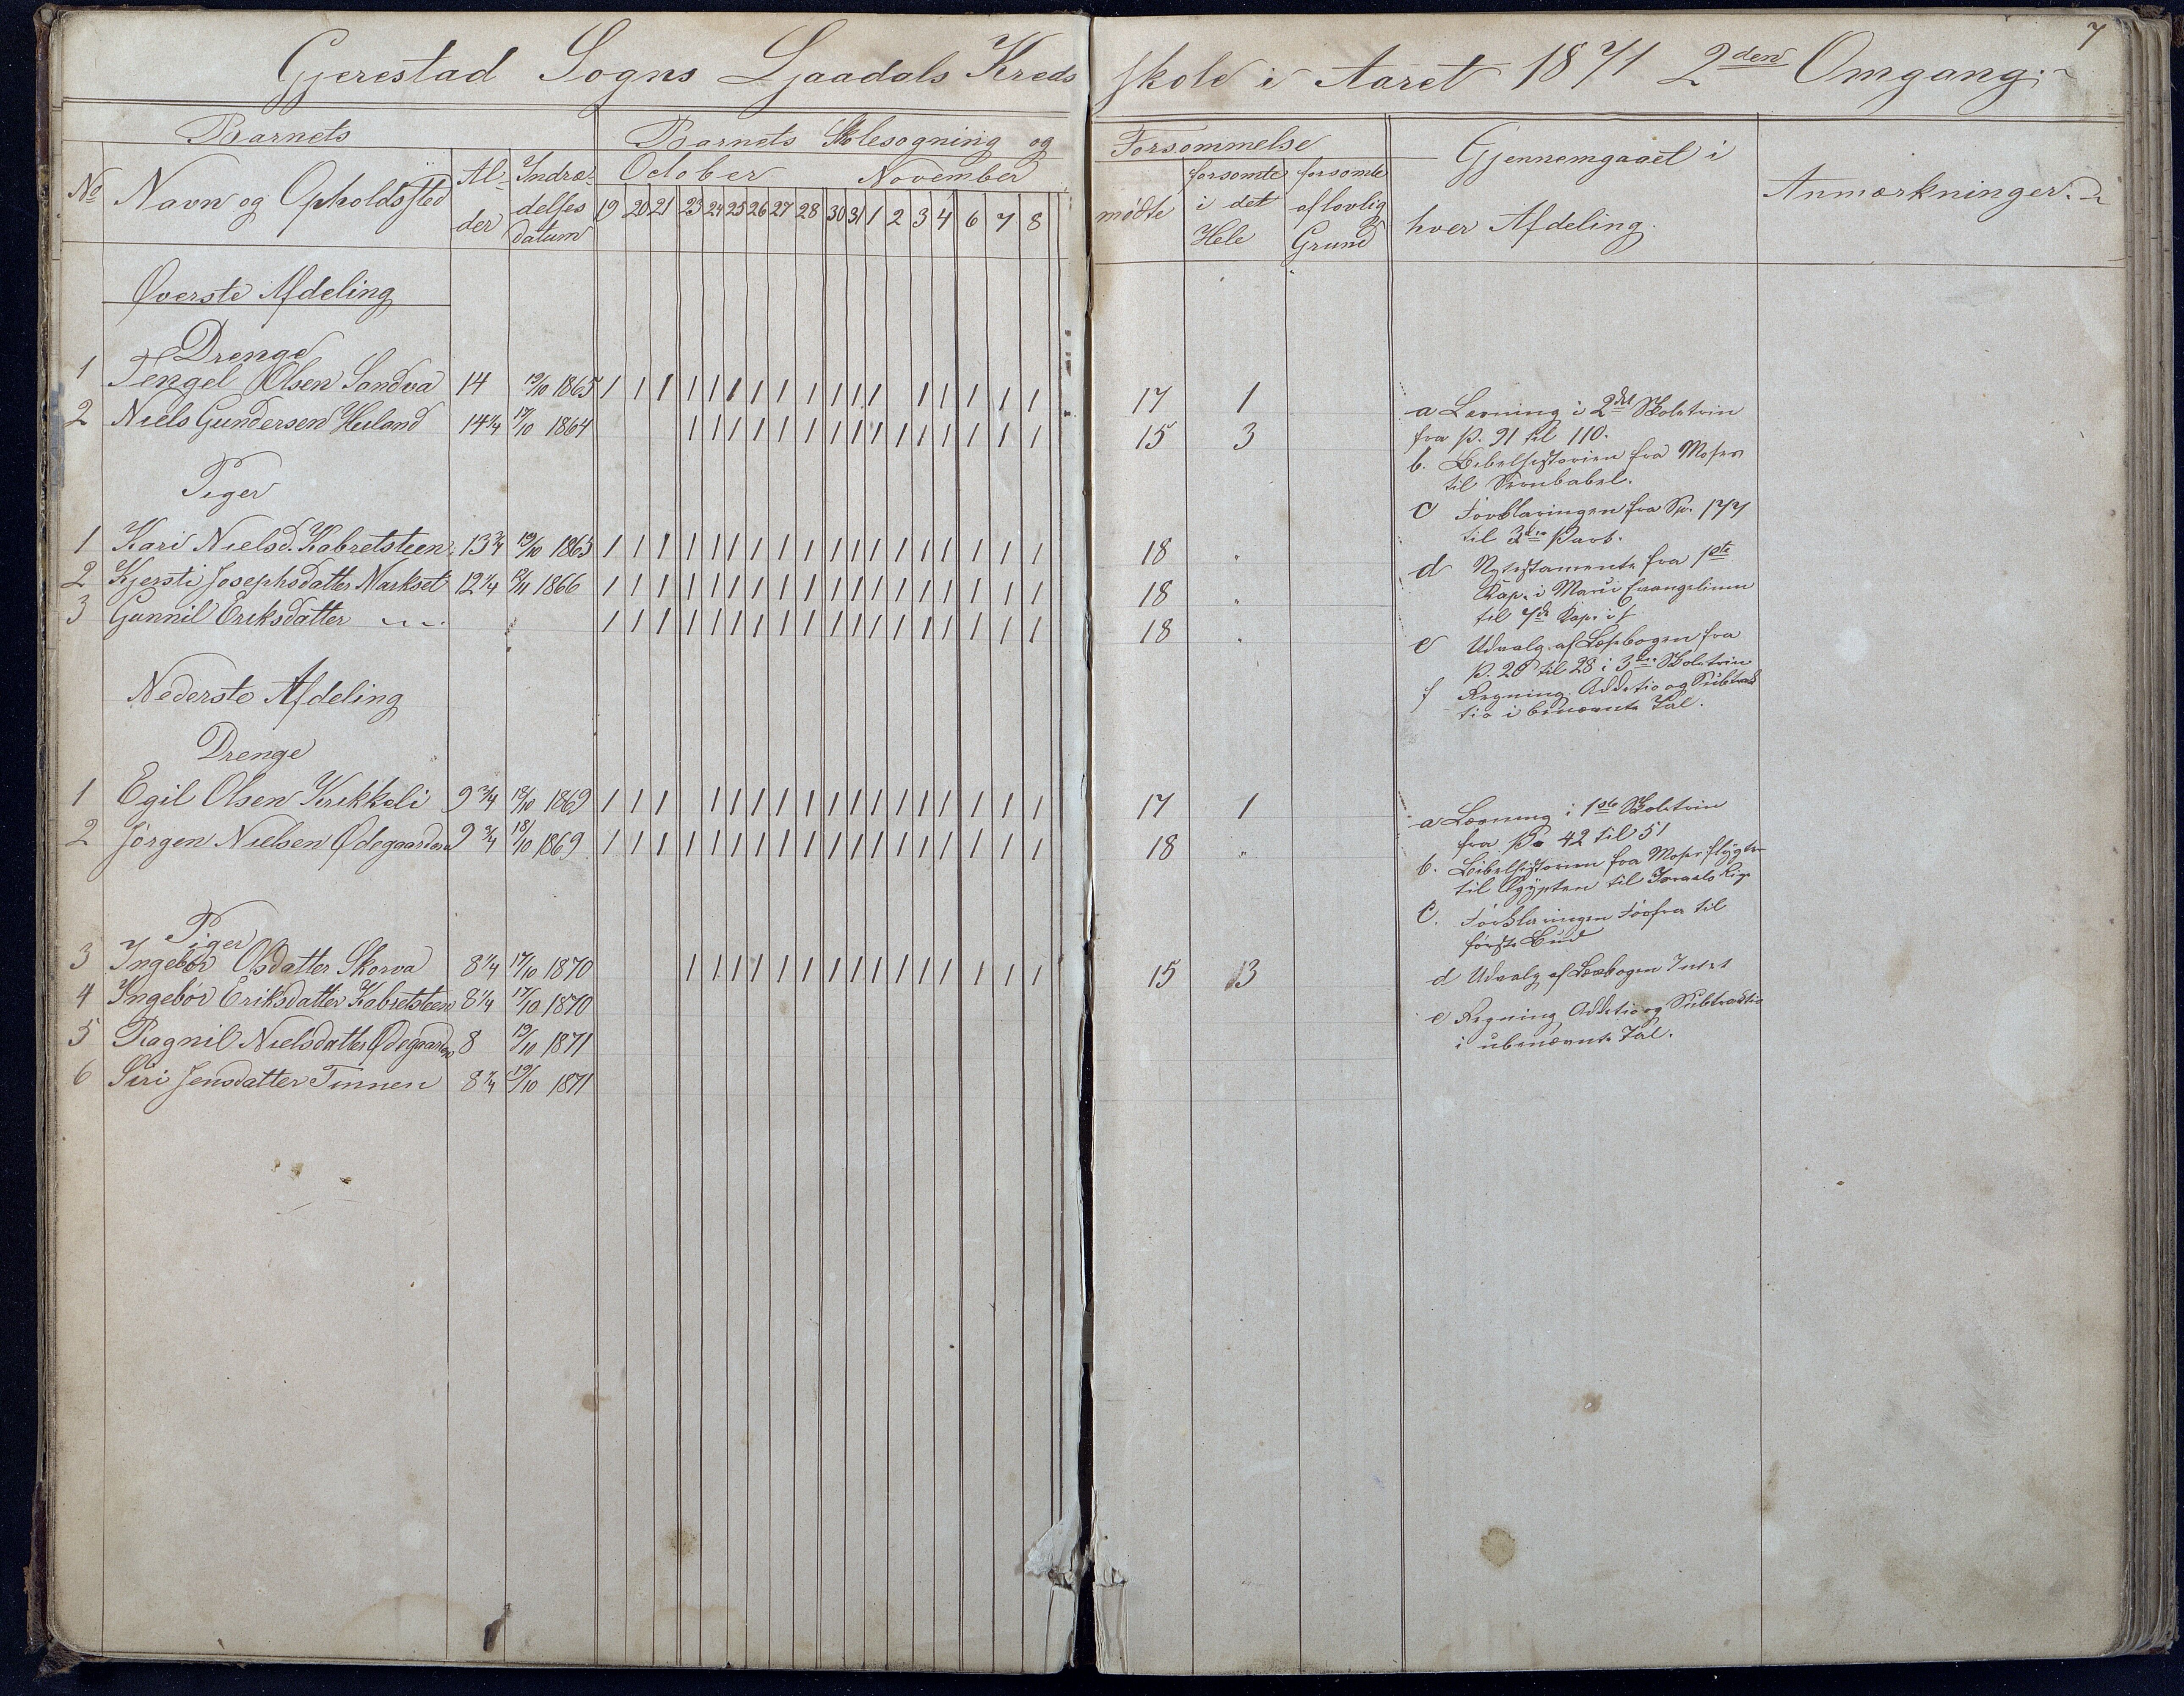 7
Gjerestad Sogns Ljaadals Kreds skole i Aaret 1871 2den Omgang.
Barnets
Barnets Skolesøgning og Forsømmelse
No Navn og Opholdssted
Alder
Indrædelses datum
October November
19 20 21 23 24 25 26 27 28 30 31 1 2 3 4 6 7 8
mødte
forsømte i det Hele
forsømte af lovlig Grund
Gjennemgaaet i
hver Afdeling.
Anmærkninger.
Øverste Afdeling
Drenge
1 Tengel Olsen Sandva 14 19/10 1865 1 1 1 1 1 1 1 1 1 1 1 1 1 1 1 1 1 17 1
2 Niels Gundersen Heiland 14 1/4 17/10 1864 1 1 1 1 1 1 1 1 1 1 1 1 1 1 1 15 3
Piger
1 Kari Nielsd. Kabretsteen 13 3/4 19/10 1865 1 1 1 1 1 1 1 1 1 1 1 1 1 1 1 1 1 1 18 "
2 Kjersti Josephsdatter Markset 12 1/4 12/11 1866 1 1 1 1 1 1 1 1 1 1 1 1 1 1 1 1 1 1 18 "
3 Gunnil Eriksdatter 1 1 1 1 1 1 1 1 1 1 1 1 1 1 1 1 1 1 18 "
a Læsning i 2det Skoletrin
fra p. 91 til 110.
b. Bibelhistorien fra Moses
til
c Forklaringen fra Sp. 177
til 3die Part.
d Nytestamente fra 1ste
Kap. i Marci Evangelium
til 7de Kap.
e Udvalg af Læsebogen fra
p. 20 til 28 i 3die Skoletrin
f Regning. Additio og Subtrac
tio i benævnte Tal.
Nederste Afdeling
Drenge
1 Egil Olsen Krikkeli 9 3/4 18/10 1869 1 1 1 1 1 1 1 1 1 1 1 1 1 1 1 1 1 17 1
2 Jørgen Nielsen Ødegaarden 9 3/4 18/10 1869 1 1 1 1 1 1 1 1 1 1 1 1 1 1 1 1 1 1 18 "
Piger
3 Ingebør Olsdatter Skorva 8 1/4 17/10 1870 1 1 1 1 1 1 1 1 1 1 1 1 1 1 1 15 13
4 Ingebør Eriksdatter Kabretsteen 8 1/4 17/10 1870
5 Ragnil Nielsdatter Ødegaarden 8 19/10 1871
6 Siri Jensdatter Tinnen 8 1/4 19/10 1871
a Læsning i 1ste Skoletrin
fra p. 42 til 51
b. Bibelhistorien fra Moses flygter
til Ægypten til Israels Rige
c. Forklaringen forfra til
første Bud
d Udvalg af Læsebogen Intet
e Regning Additio og Subtractio
i ubenævnte Tal.